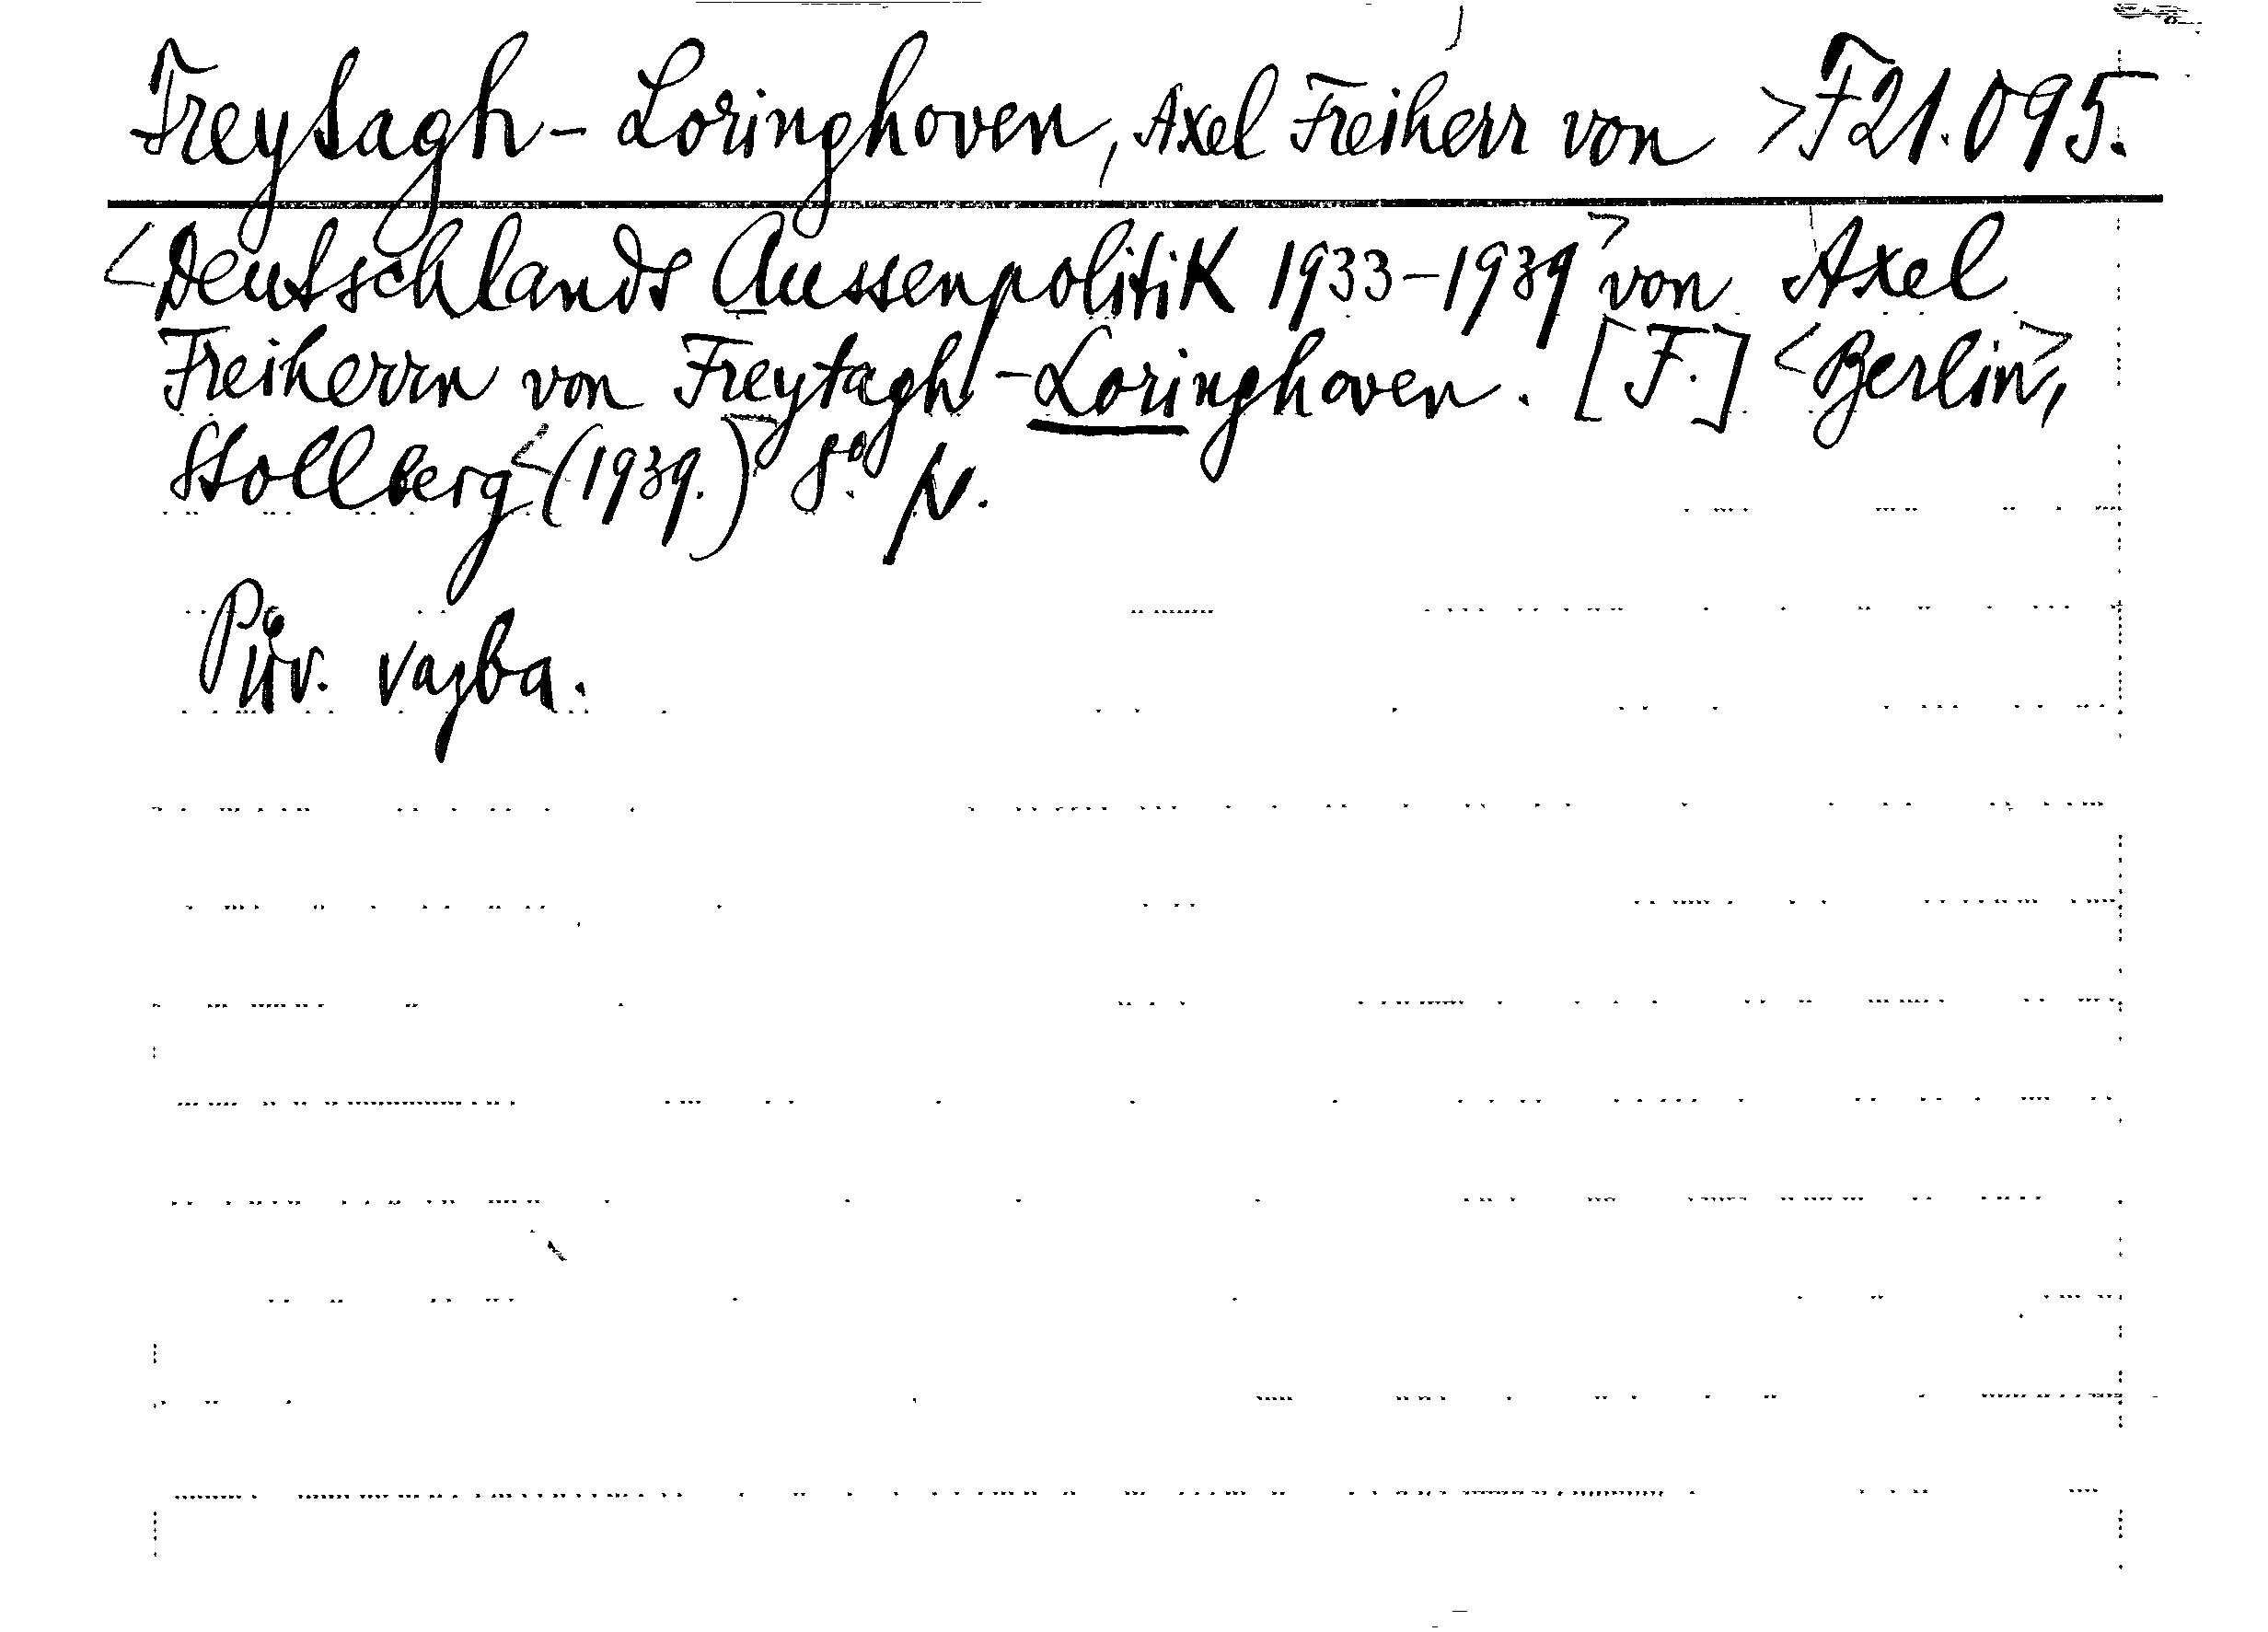 Freytagh-Loringhoven, Axel Freiherr von >F21.095.
<Deutschlands Aussenpolitik 1933-1939> von Axel
Freiherrn von Freytagh-Loringhoven. [F.] <Berlin>,
Stollberg <(1939.)> 8° N.
Pův. vazba.